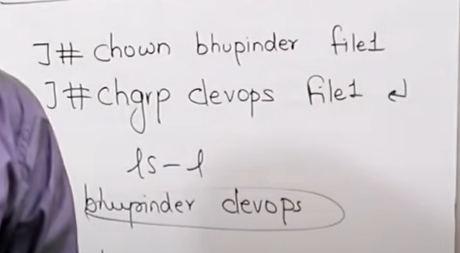 ]# chown bhupinder file1
]# chgrp devops file1 ↵
ls-l
bhupinder devops